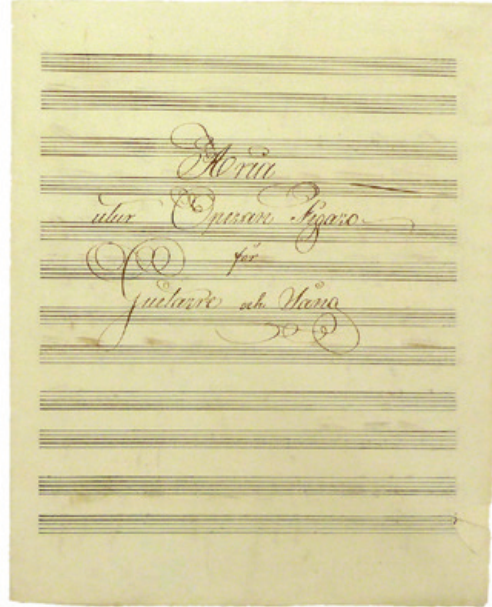 Aria
utur Operan Figaro
för
Guitarre och Sång